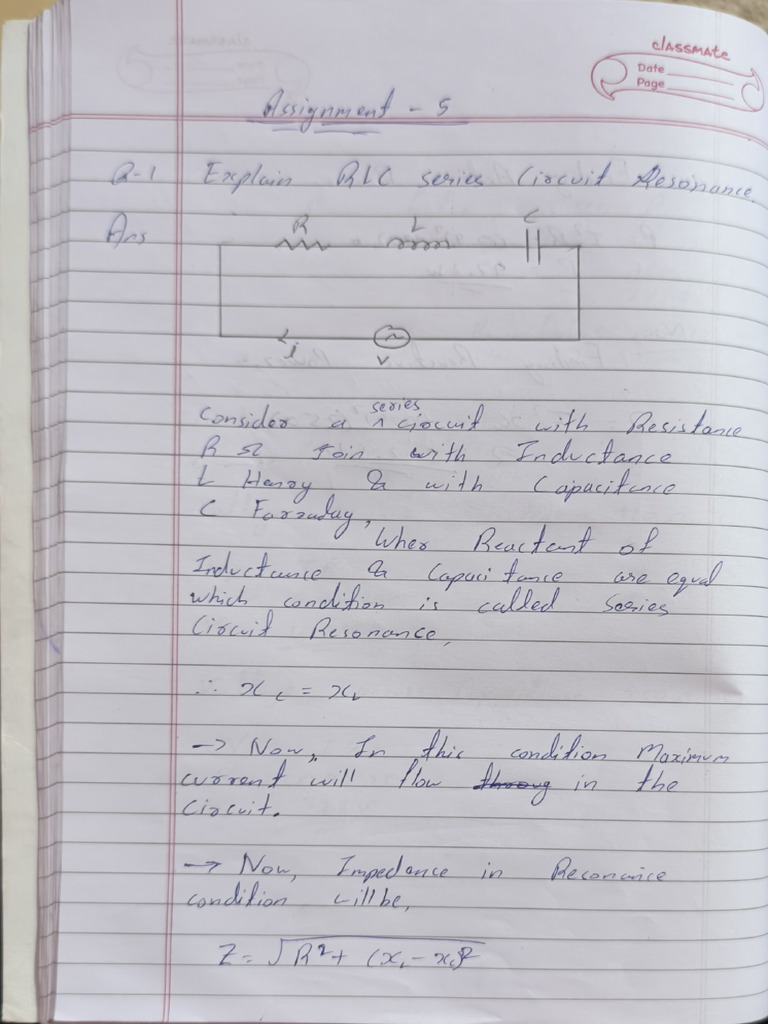 classmate
Date
Page
Assignment - 5
Q-1 Explain RLC series Circuit Resonance.
Ans
R L C
i
V
Consider a series circuit with Resistance
R Ω join with Inductance
L Henry & with Capacitance
C Farzuday,
When Reactant of
Inductance & Capacitance are equal
which condition is called series
Circuit Resonance,
∴ x c = x L
→ Now, In this condition Maximum
current will flow throug in the
circuit.
→ Now, Impedance in Reconance
condition will be,
Z = √R² + (xL - xc)²